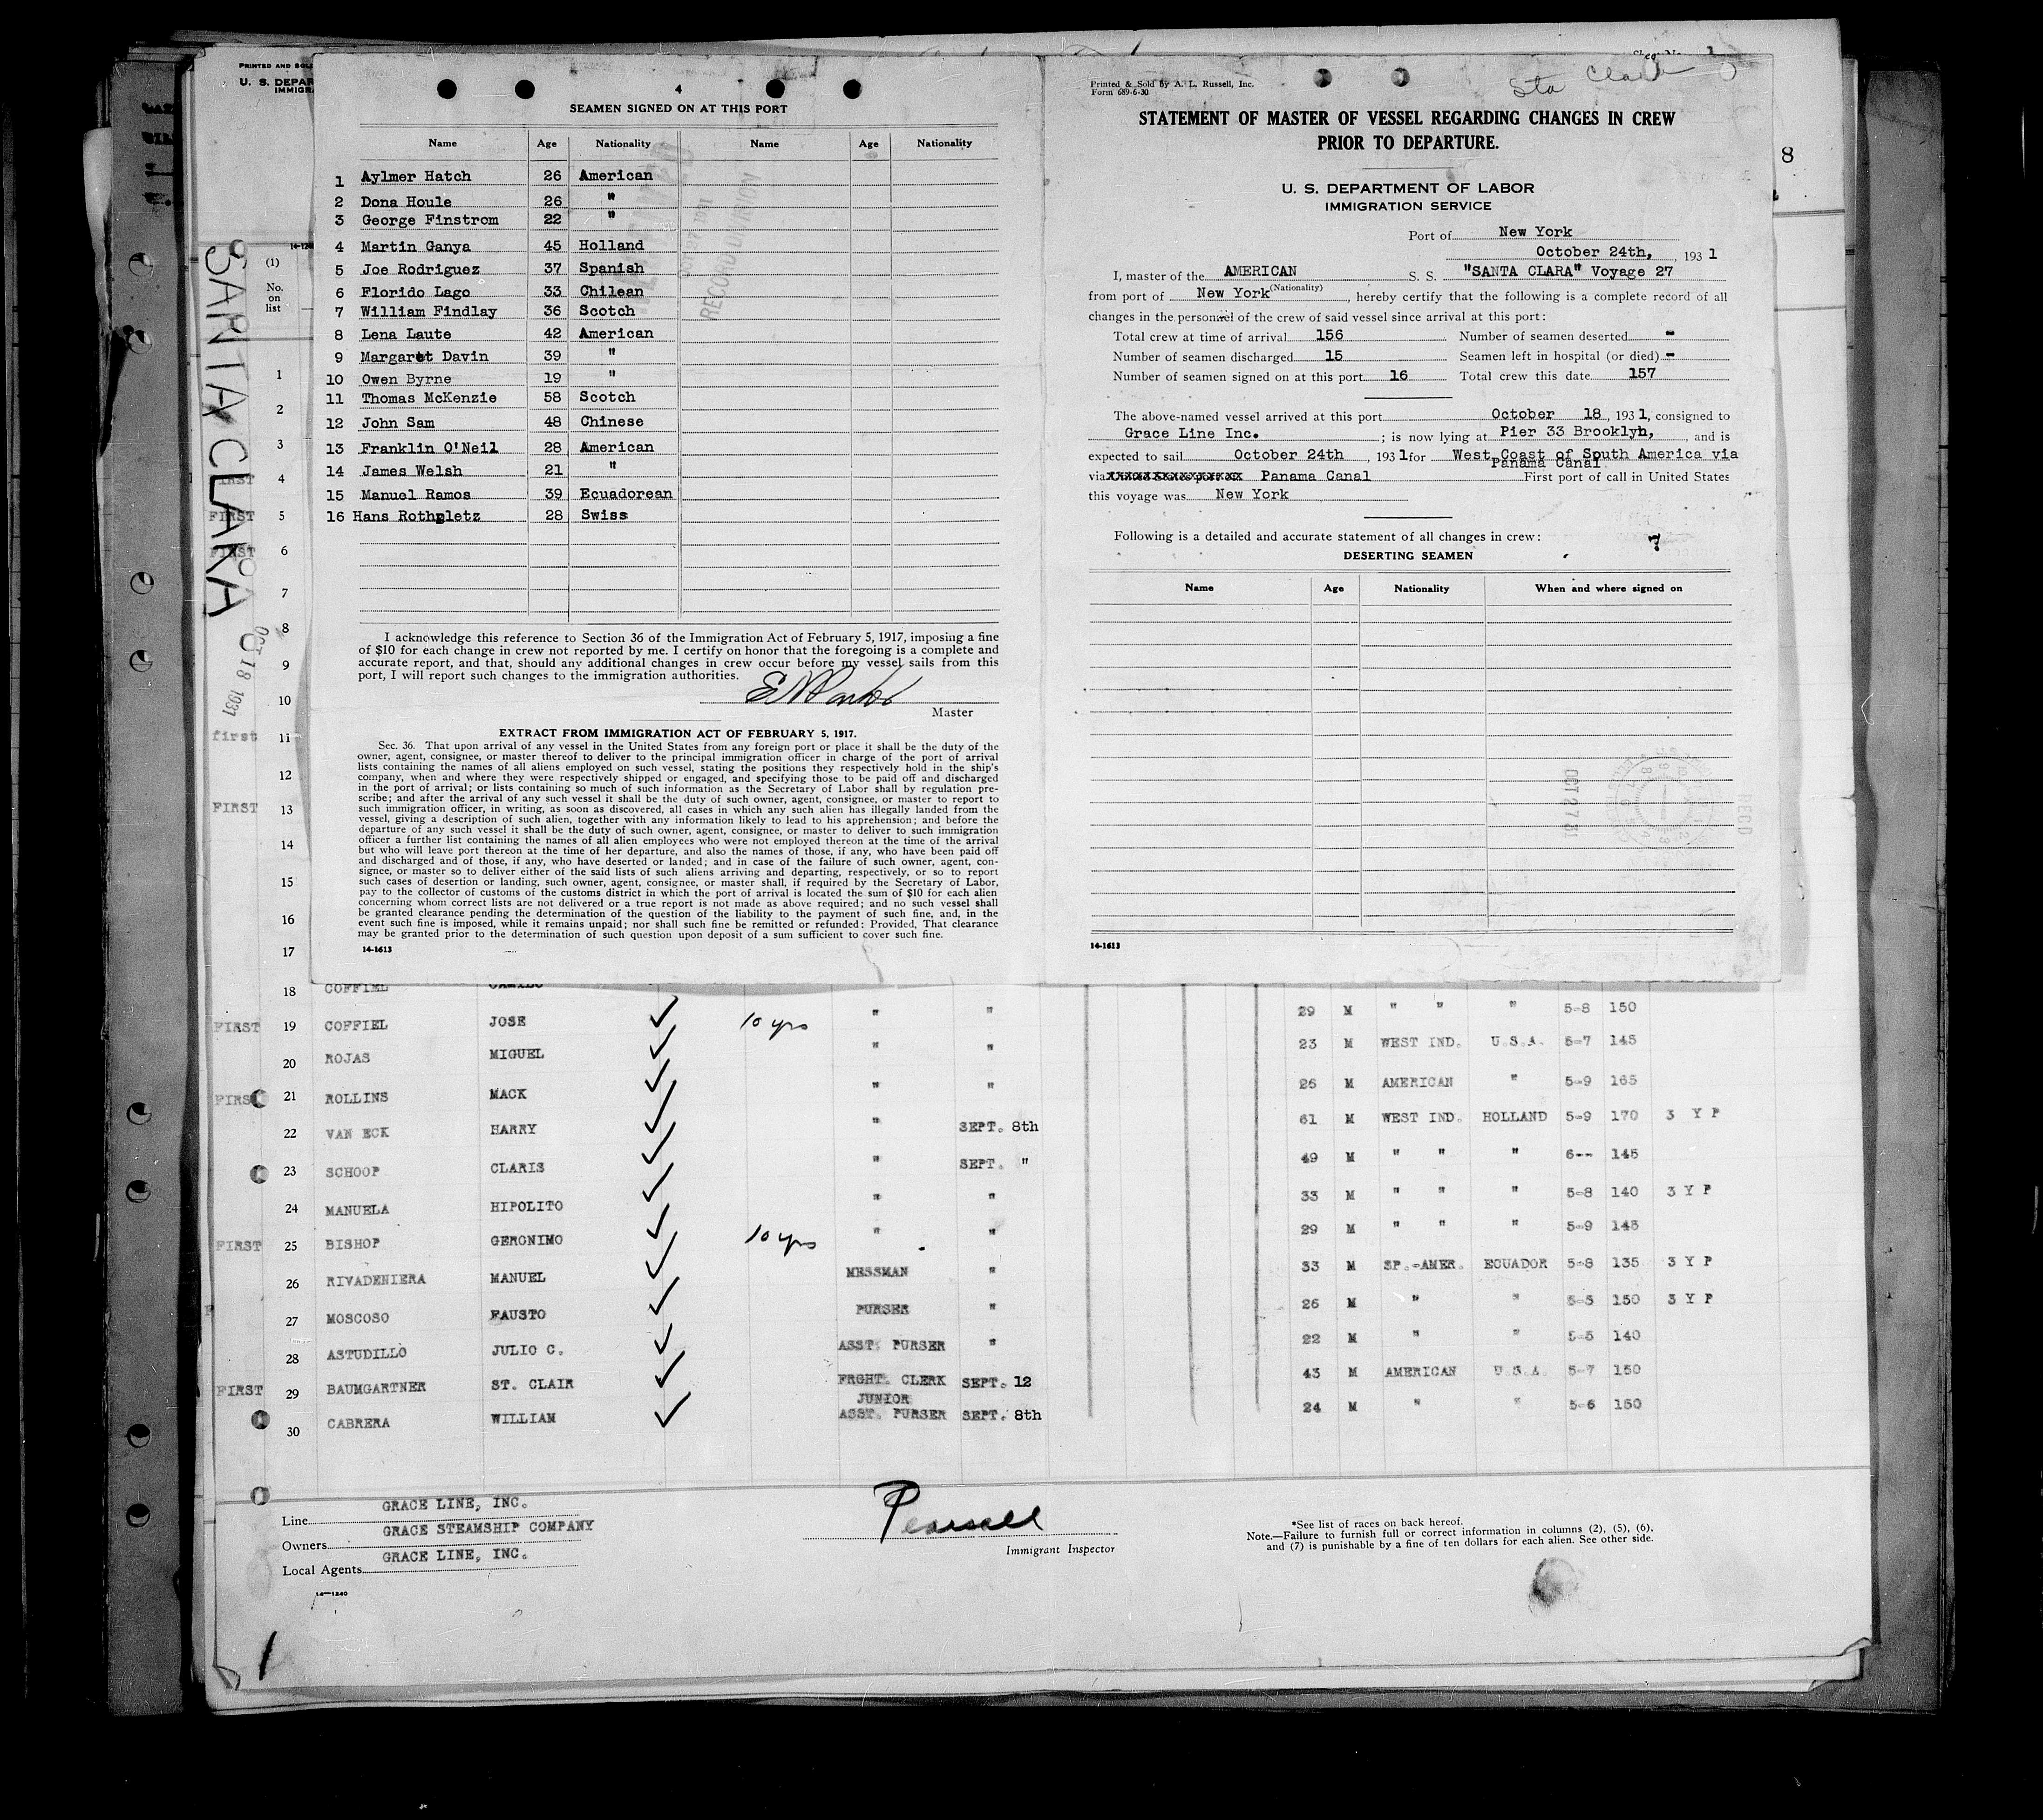 PRINTED AND SOLD
U. S. DEPAR
IMMIGRA
8
SANTA CLARA
OCT 18 1931
14-1240
(1)
No.
on
list
4
SEAMEN SIGNED ON AT THIS PORT
Name Age Nationality Name Age Nationality
1 Aylmer Hatch 26 American
2 Dona Houle 26 "
3 George Finstrom 22 "
4 Martin Ganya 45 Holland
5 Joe Rodriguez 37 Spanish
6 Florido Lago 33 Chilean
7 William Findlay 36 Scotch
8 Lena Laute 42 American
9 Margaret Davin 39 "
10 Owen Byrne 19 "
11 Thomas McKenzie 58 Scotch
12 John Sam 48 Chinese
13 Franklin O'Neil 28 American
14 James Welsh 21 "
15 Manuel Ramos 39 Ecuadorean
16 Hans Rothpletz 28 Swiss
RECORD UNION
I acknowledge this reference to Section 36 of the Immigration Act of February 5, 1917, imposing a fine
of $10 for each change in crew not reported by me. I certify on honor that the foregoing is a complete and
accurate report, and that, should any additional changes in crew occur before my vessel sails from this
port, I will report such changes to the immigration authorities.
Master
EXTRACT FROM IMMIGRATION ACT OF FEBRUARY 5, 1917.
Sec. 36. That upon arrival of any vessel in the United States from any foreign port or place it shall be the duty of the
owner, agent, consignee, or master thereof to deliver to the principal immigration officer in charge of the port of arrival
lists containing the names of all aliens employed on such vessel, stating the positions they respectively hold in the ship's
company, when and where they were respectively shipped or engaged, and specifying those to be paid off and discharged
in the port of arrival; or lists containing so much of such information as the Secretary of Labor shall by regulation pre-
scribe; and after the arrival of any such vessel it shall be the duty of such owner, agent, consignee, or master to report to
such immigration officer, in writing, as soon as discovered, all cases in which any such alien has illegally landed from the
vessel, giving a description of such alien, together with any information likely to lead to his apprehension; and before the
departure of any such vessel it shall be the duty of such owner, agent, consignee, or master to deliver to such immigration
officer a further list containing the names of all alien employees who were not employed thereon at the time of the arrival
but who will leave port thereon at the time of her departure, and also the names of those, if any, who have been paid off
and discharged and of those, if any, who have deserted or landed; and in case of the failure of such owner, agent, con-
signee, or master so to deliver either of the said lists of such aliens arriving and departing, respectively, or so to report
such cases of desertion or landing, such owner, agent, consignee, or master shall, if required by the Secretary of Labor,
pay to the collector of customs of the customs district in which the port of arrival is located the sum of $10 for each alien
concerning whom correct lists are not delivered or a true report is not made as above required; and no such vessel shall
be granted clearance pending the determination of the question of the liability to the payment of such fine, and, in the
event such fine is imposed, while it remains unpaid; nor shall such fine be remitted or refunded: Provided, That clearance
may be granted prior to the determination of such question upon deposit of a sum sufficient to cover such fine.
14-1613
Printed & Sold by A. L. Russell, Inc.
Form 689-6-30
Sta Clara
STATEMENT OF MASTER OF VESSEL REGARDING CHANGES IN CREW
PRIOR TO DEPARTURE.
U. S. DEPARTMENT OF LABOR
IMMIGRATION SERVICE
Port of New York
October 24th, , 193 1
I, master of the AMERICAN S. S. "SANTA CLARA" Voyage 27
(Nationality)
from port of New York , hereby certify that the following is a complete record of all
changes in the personnel of the crew of said vessel since arrival at this port:
Total crew at time of arrival 156 Number of seamen deserted -
Number of seamen discharged 15 Seamen left in hospital (or died) -
Number of seamen signed on at this port 16 Total crew this date 157
The above-named vessel arrived at this port October 18 , 193 1, consigned to
Grace Line Inc. ; is now lying at Pier 33 Brooklyn, , and is
expected to sail October 24th , 193 1 for West Coast of South America via
Panama Canal
via Panama Canal First port of call in United States
this voyage was New York
Following is a detailed and accurate statement of all changes in crew:
7
DESERTING SEAMEN
Name Age Nationality When and where signed on
OCT 27 31
RECD
14-1613
1
2
3
FIRST 4
FIRST 5
FIRST 6
7
8
9
10
first 11
12
FIRST 13
14
15
16
17
18 COFFIEL CAMILO
FIRST 19 COFFIEL JOSE 10 yrs " " 29 M " " " 5-8 150
20 ROJAS MIGUEL " " 23 M WEST IND. U.S.A. 5-7 145
FIRST 21 ROLLINS MACK " " 26 M AMERICAN " 5-9 165
22 VAN ECK HARRY " SEPT. 8th 61 M WEST IND. HOLLAND 5-9 170 3 Y P
23 SCHOOP CLARIS " SEPT. " 49 M " " " 6-- 145
24 MANUELA HIPOLITO " " 33 M " " " 5-8 140 3 Y P
FIRST 25 BISHOP GERONIMO 10 yrs " " 29 M " " " 5-9 145
26 RIVADENIERA MANUEL MESSMAN " 33 M SP.-AMER. ECUADOR 5-8 135 3 Y P
27 MOSCOSO FAUSTO PURSER " 26 M " " 5-5 150 3 Y P
28 ASTUDILLO JULIO C. ASST. PURSER " 22 M " " 5-5 140
FIRST 29 BAUMGARTNER ST. CLAIR FRGHT. CLERK SEPT. 12 43 M AMERICAN U.S.A. 5-7 150
30 CABRERA WILLIAM JUNIOR ASST. PURSER SEPT. 8th 24 M " " 5-6 150
Line GRACE LINE, INC.
Owners GRACE STEAMSHIP COMPANY
Local Agents GRACE LINE, INC.
14-1240
Immigrant Inspector
*See list of races on back hereof.
Note.—Failure to furnish full or correct information in columns (2), (5), (6),
and (7) is punishable by a fine of ten dollars for each alien. See other side.
1